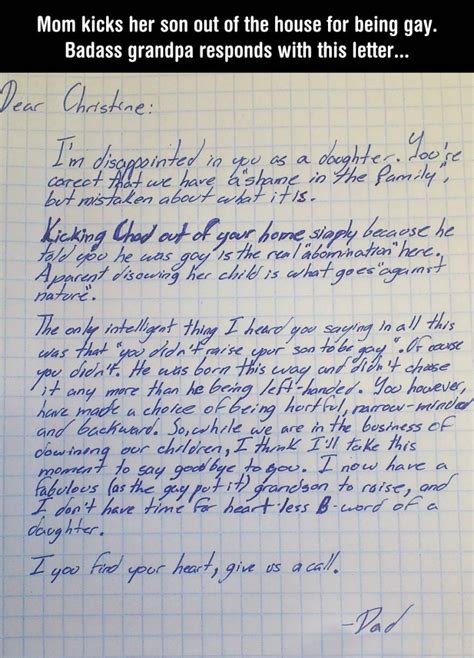 Mom kicks her son out of the house for being gay.
Badass grandpa responds with this letter...
Dear Christine:
I'm disappointed in you as a daughter. You're
corect that we have a "shame in the family",
but mistaken about what it is.
Kicking Chad out of your home simply because he
told you he was gay is the real "abomination" here.
A parent disowing her child is what goes "against
nature".
The only intelligent thing I heard you saying in all this
was that "you didn't raise your son to be gay". Of couse
you didn't. He was born this way and didn't choose
it any more than he being left-handed. You however,
have made a choice of being hurtful, narrow-minded
and backward. So, while we are in the business of
dowining our children, I think I'll take this
moment to say goodbye to you. I now have a
fabulous (as the gay put it) grandson to raise, and
I don't have time for heart-less B-word of a
daughter.
I you find your heart, give us a call.
-Dad